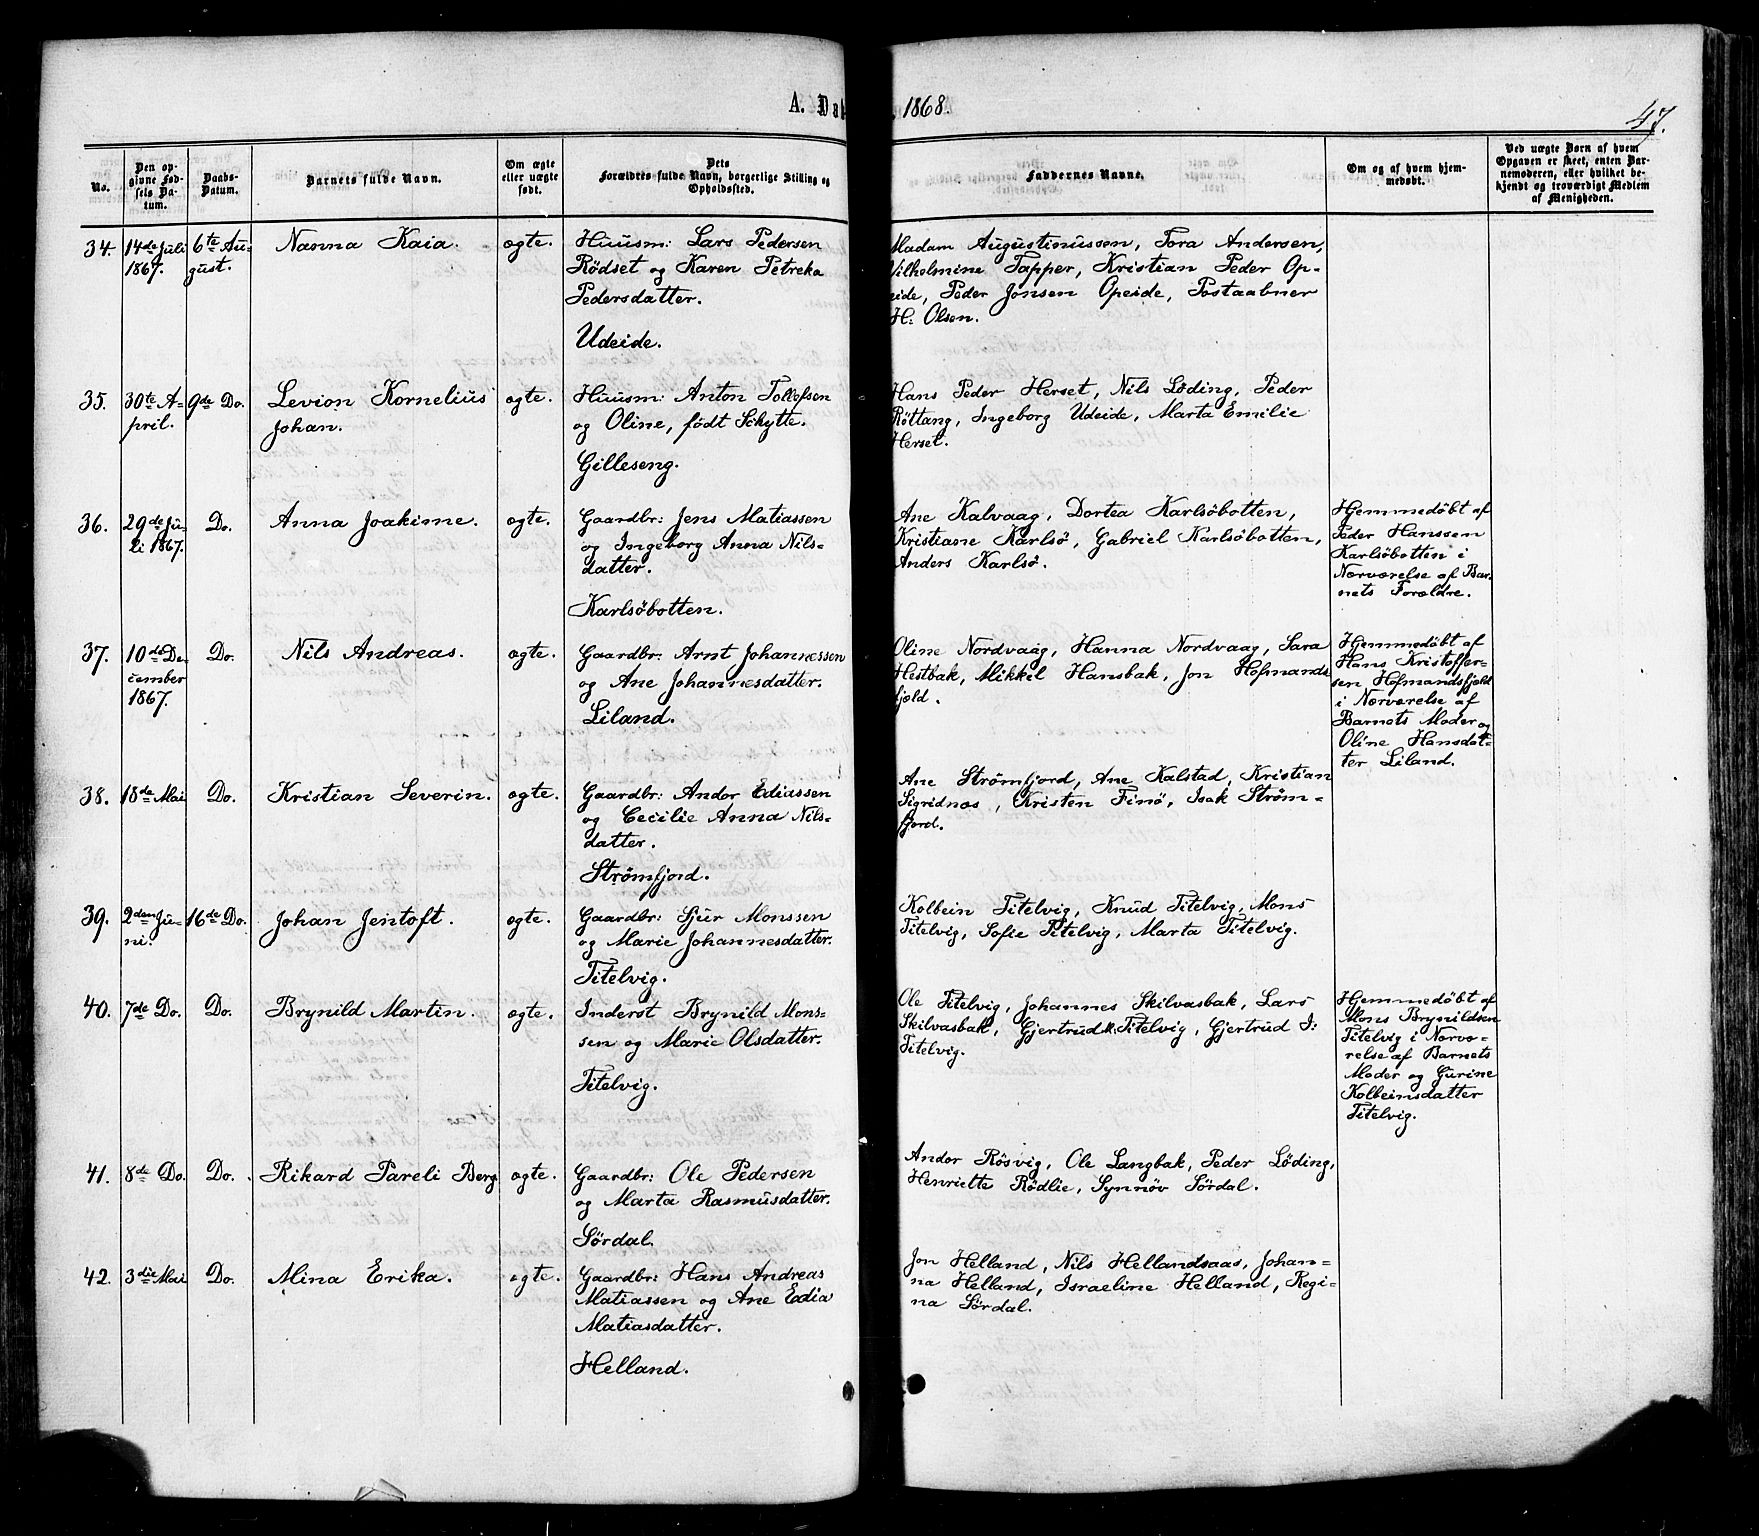 A. Da
1868.
47.
No.
Den op-
givne Fød-
sels Da-
tum.
Daabs-
Datum.
Barnets fulde Navn.
Om ægte
eller uægte
født.
Dets
Forældres fulde Navn, borgerlige Stilling og
Opholdssted.
Faddernes Navne.
Om og af hvem hjem-
medøbt.
Ved uægte Børn af hvem
Opgaven er skeet, enten Bar-
nemoderen, eller hvilket be-
kjendt og troværdigt Medlem
af Menigheden.
34.
14de Juli
1867.
6te Au-
gust.
Nanna Kaia.
ægte.
Huusm: Lars Pedersen
Rödset og Karen Petreka
Pedersdatter.
Udeide.
Madam Augustinussen, Tora Andersen,
Vilhelmine Tapper, Kristian Peder Op-
eide, Peder Jonsen Opeide, Postaabner
H: Olsen.
35.
30te A-
pril.
9de Do.
Levion Kornelius
Johan.
ægte.
Huusm: Anton Tollefsen
og Oline, født Schytte.
Gilleseng.
Hans Peder Herset, Nils Löding, Peder
Röttang, Ingeborg Udeide, Marta Emilie
Herset.
36.
29de Ju-
li 1867.
Do.
Anna Joakime.
ægte.
Gaardbr: Jens Matiassen
og Ingeborg Anna Nils-
datter.
Karlsöbotten.
Ane Kalvaag, Dortea Karlsöbotten,
Kristiane Karlsö, Gabriel Karlsöbotten,
Anders Karlsö.
Hjemmedöbt af
Peder Hanssen
Karlsöbotten i
Nærværelse af Bar-
nets Forældre.
37.
10de De-
cember
1867.
Do.
Nils Andreas.
ægte.
Gaardbr: Arnt Johannessen
og Ane Johannesdatter.
Liland.
Oline Nordvaag, Hanna Nordvaag, Sara
Hestbak, Mikkel Hansbak, Jon Hofmands-
fjeld.
Hjemmedöbt af
Hans Kristoffer-
sen Hofmandsfjeld
i Nærværelse af
Barnets Moder og
Oline Hansdat-
ter Liland.
38.
18de Mai
Do.
Kristian Severin.
ægte.
Gaardbr: Andor Ediassen
og Cecilie Anna Nils-
datter.
Strømfjord.
Ane Strømfjord, Ane Kalstad, Kristian
Sigridnæs, Kristen Finö, Isak Strøm-
fjord.
39.
2den Ju-
ni.
16de Do.
Johan Jentoft.
ægte.
Gaardbr: Sjur Monssen
og Marie Johannesdatter.
Titelvig.
Kolbein Titelvig, Knud Titelvig, Mons
Titelvig, Sofie Titelvig, Marta Titelvig.
40.
7de Do.
Do.
Brynild Martin.
ægte.
Inderst Brynild Mons-
sen og Marie Olsdatter.
Titelvig.
Ole Titelvig, Johannes Skilvasbak, Lars
Skilvasbak, Gjertrud M: Titelvig, Gjertrud I:
Titelvig.
Hjemmedöbt af
Mons Brynildsen
Titelvig i Nærvæ-
relse af Barnets
Moder og Gurine
Kolbeinsdatter
Titelvig.
41.
8de Do.
Do.
Rikard Pareli Berg
ægte.
Gaardbr: Ole Pedersen
og Marta Rasmusdatter.
Sördal.
Andor Rösvig, Ole Langbak, Peder Löding,
Henriette Rödlie, Synnöv Sördal.
42.
3die Mai
Do.
Mina Erika.
ægte.
Gaardbr: Hans Andreas
Matiassen og Ane Eedia
Matiasdatter.
Helland.
Jon Helland, Nils Hellandsaas, Johan-
na Helland, Israeline Helland, Regi-
na Sördal.